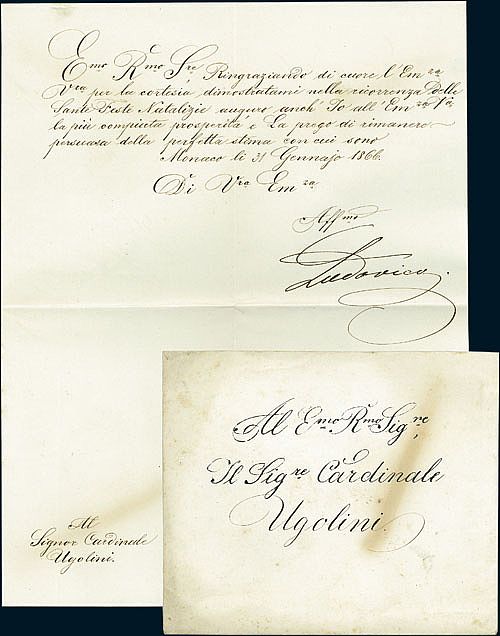 Emo Rmo Sre Ringraziando di cuore l'Emza
Vra per la cortesia dimostratami nella ricorrenza Delle
Sante Feste Natalizie auguro anch'Io all'Emza Va
la più compiuta prosperità e La prego di rimanere
persuasa della perfetta stima con cui sono
Monaco li 31 Gennajo 1866.
Di Vra Emza
Affmo
Ludovico.
Al
Signor Cardinale
Ugolini.
Al Emo Rmo Signre,
Il Sigre Cardinale
Ugolini